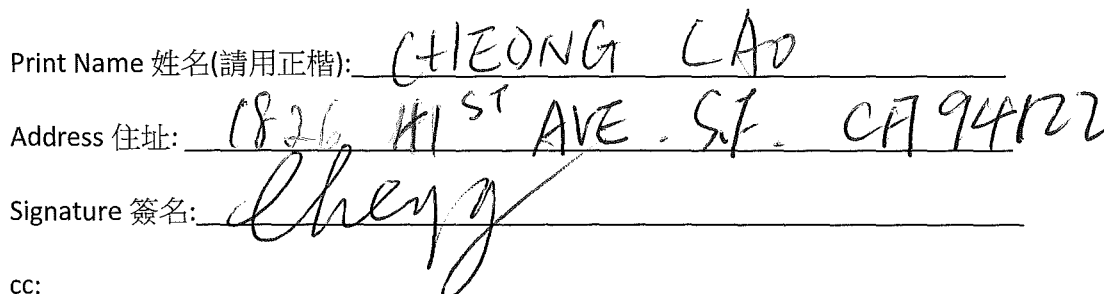 Print Name 姓名(請用正楷): CHEONG LAO
Address 住址: 1826 41ST AVE. S.F. CA 94122
Signature 簽名: Cheong
cc: